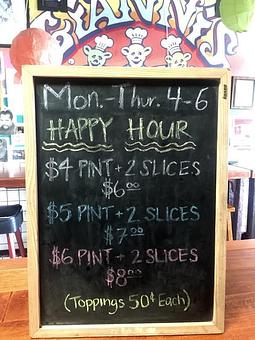 Mon.-Thur. 4-6
HAPPY HOUR
$4 PINT + 2 SLICES
$6.00
$5 PINT + 2 SLICES
$7.00
$6 PINT + 2 SLICES
$8.00
(Toppings 50¢ Each)